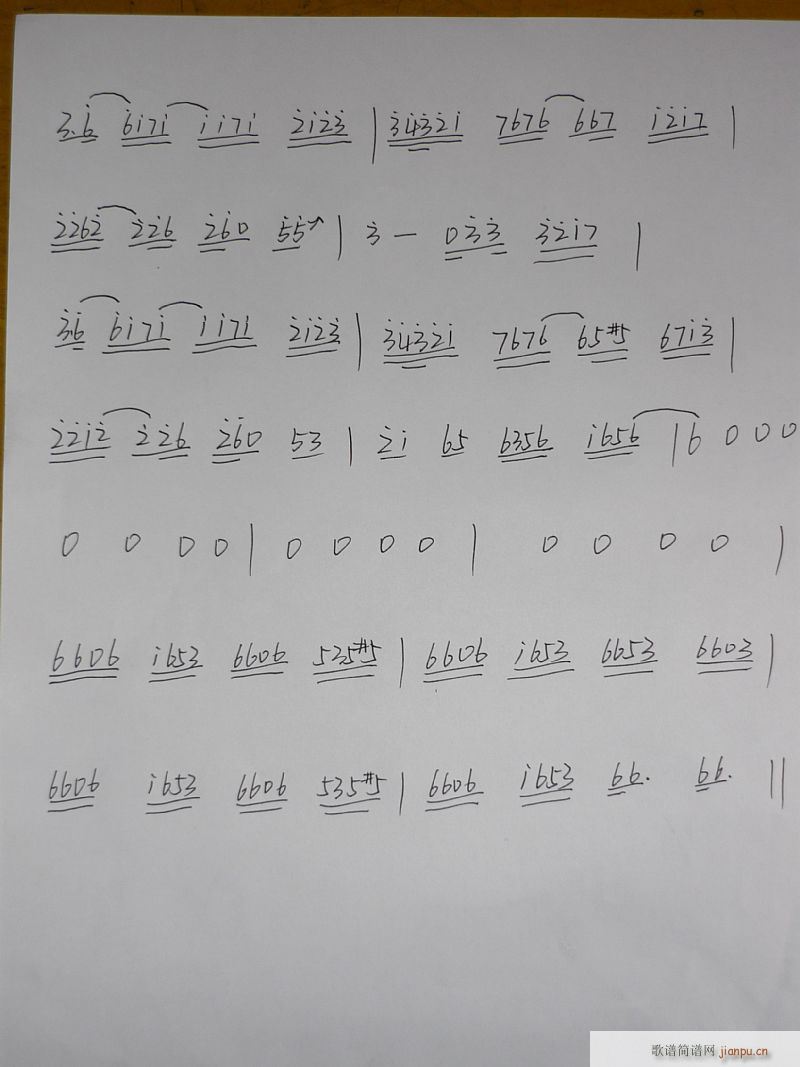 3.6 6i7i ii7i 2i23 | 3432i 7676 667 i2i7 |
2262 226 260 55↗ | 3 — 033 32i7 |
36 6i7i ii7i 2i23 | 3432i 7676 65#5 67i3 |
22i2 226 260 53 | 2i 65 6356 i656 | 6 0 0 0
0 0 0 0 | 0 0 0 0 | 0 0 0 0 |
6606 i653 6606 535#5 | 6606 i653 6653 6603 |
6606 i653 6606 535#5 | 6606 i653 66. 66. ||
歌谱简谱网 jianpu.cn